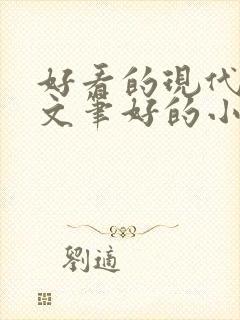 好看的現代
文筆好的小
劉適